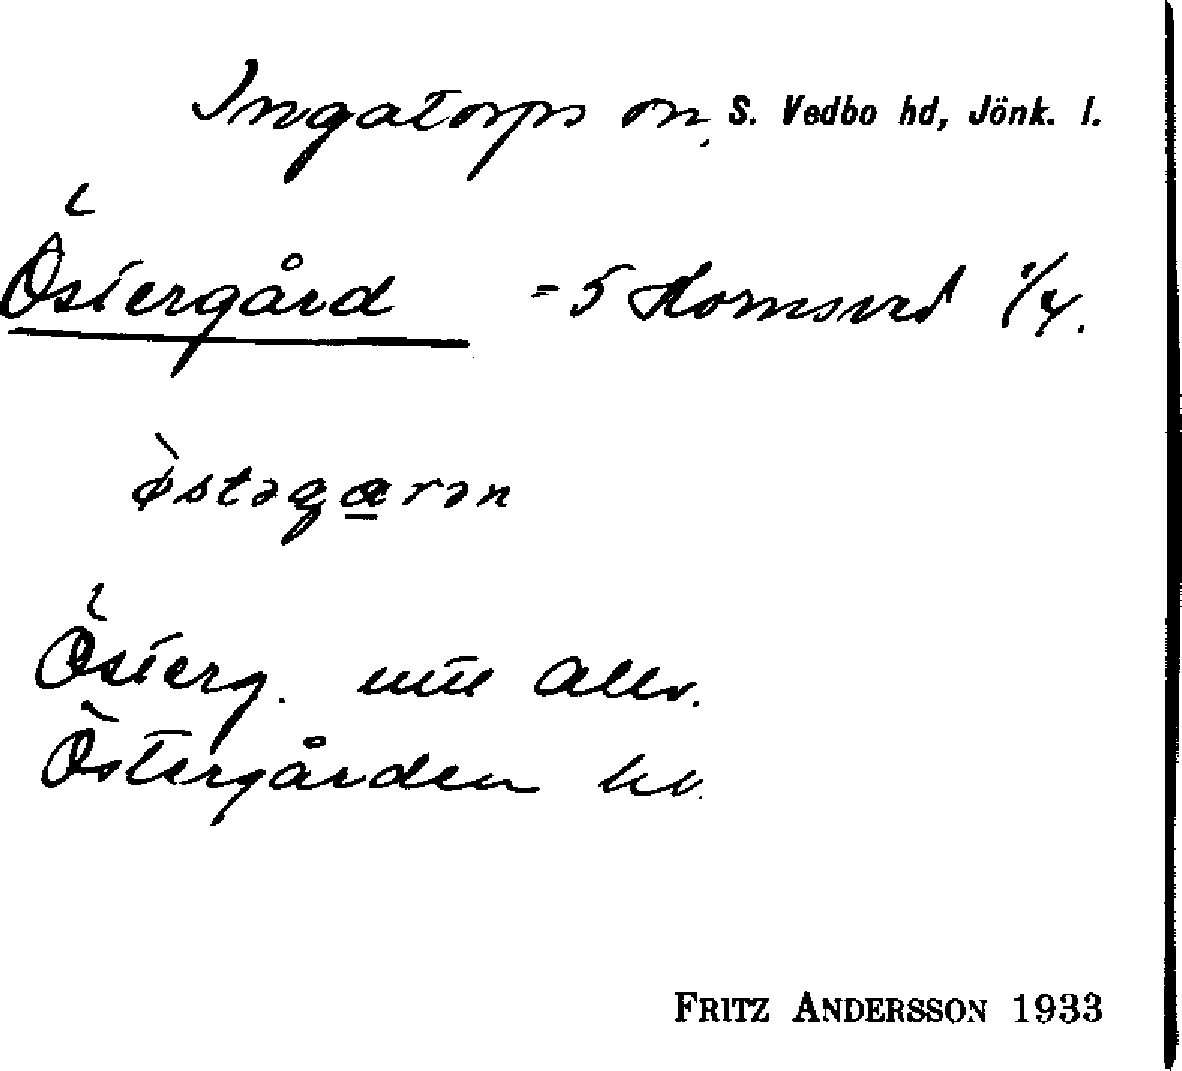 Ingatorps sn, S. Vedbo hd, Jönk. l.
Östergård = 5 Hornsved 1/4.
östəgarən
Österg. allr.
Östergården
FRITZ ANDERSSON 1933